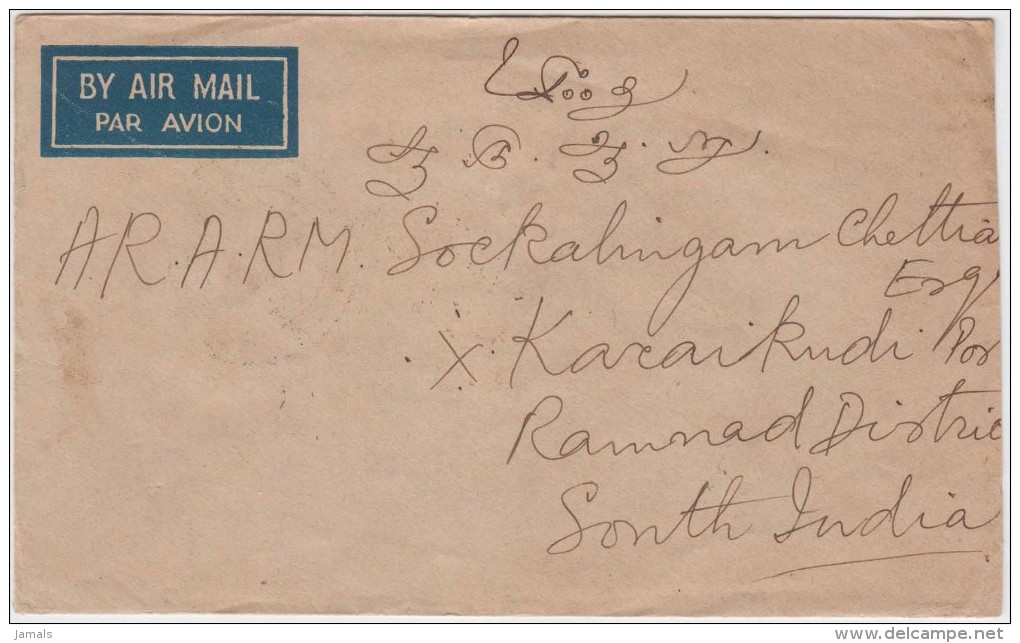 BY AIR MAIL
PAR AVION
A.R.A.RM. Sockalingam Chettia
Esq
X. Karaikudi Pos
Ramnad Distric
South India
jamals
www.delcampe.net